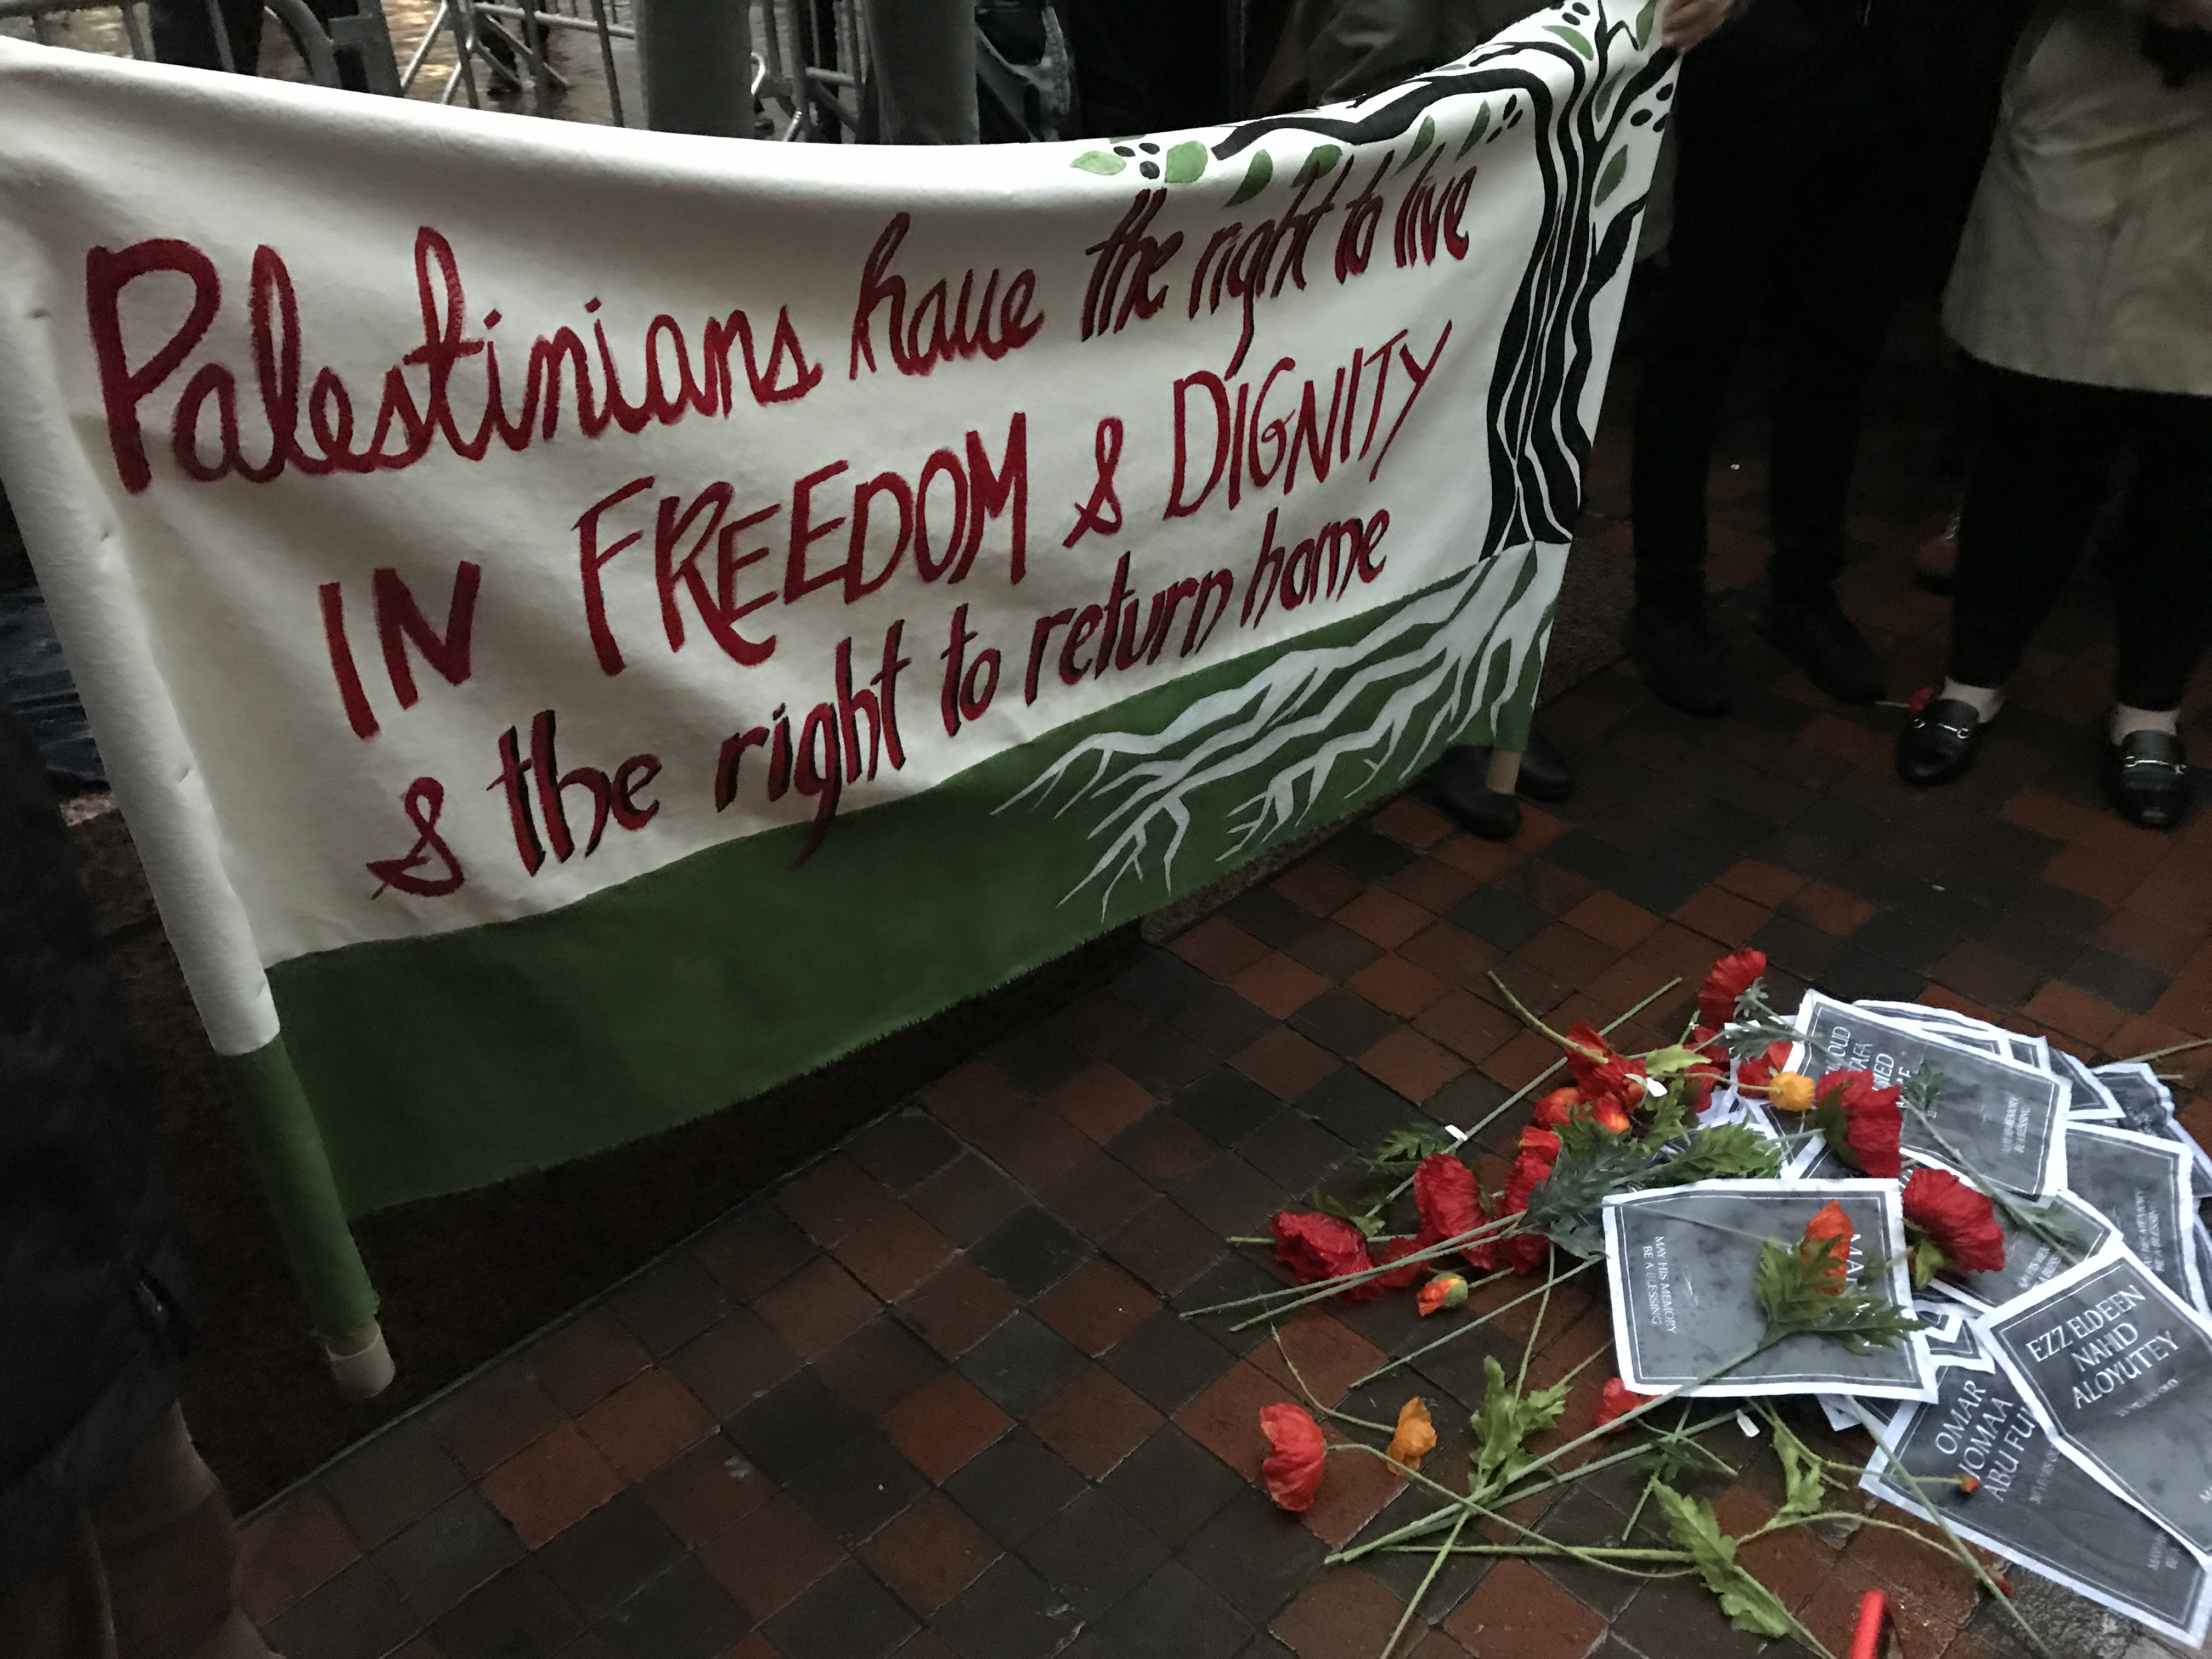 Palestinians have the right to live
IN FREEDOM & DIGNITY
& the right to return home
MAY HIS MEMORY
BE A BLESSING
EZZ ELDEEN
NAHID
ALOYUTEY
OMAR
JOMAA
ABU